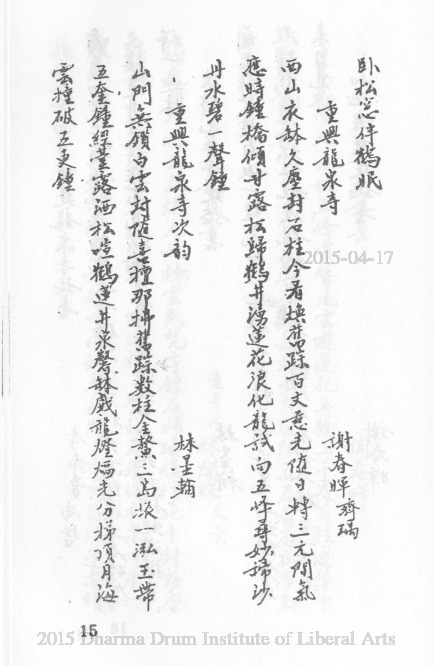 卧松窓伴鶴眠
重興龍泉寺
謝春暉 齊瑀
西山衣鉢久塵封石柱今看煥舊踪百丈慈光隨日轉三元閒氣
應時鍾橋傾甘露松歸鶴井湧蓮花浪化龍試向五峰尋妙諦沙
丹水碧一聲鐘
重興龍泉寺次韵
林星輔
山門無鎖白雲封随喜檀那拂舊踪数柱金鰲三島 一泓玉帶
五奎鐘 臺露洒松 鶴蓮井泉馨鉢戲龍燈 光分梯頂月海
雲撞破五更鐘
15
2015-04-17
2015 Dharma Drum Institute of Liberal Arts